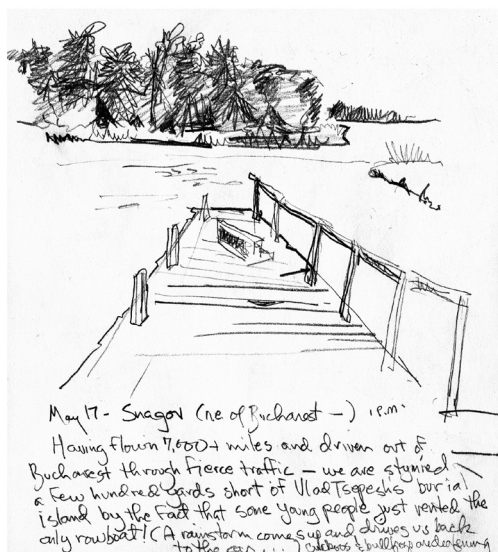 May 17 - Snagov (ne of Bucharest -) 1 P.M.
Having flown 7,000+ miles and driven out of
Bucharest through fierce traffic - we are stymied
a few hundred yards short of Vlad Tsepesh's burial
island by the fact that some young people just rented the
only rowboat! (A rainstorm comes up and drives us back
to the car.... (cuckoos & bullfrogs